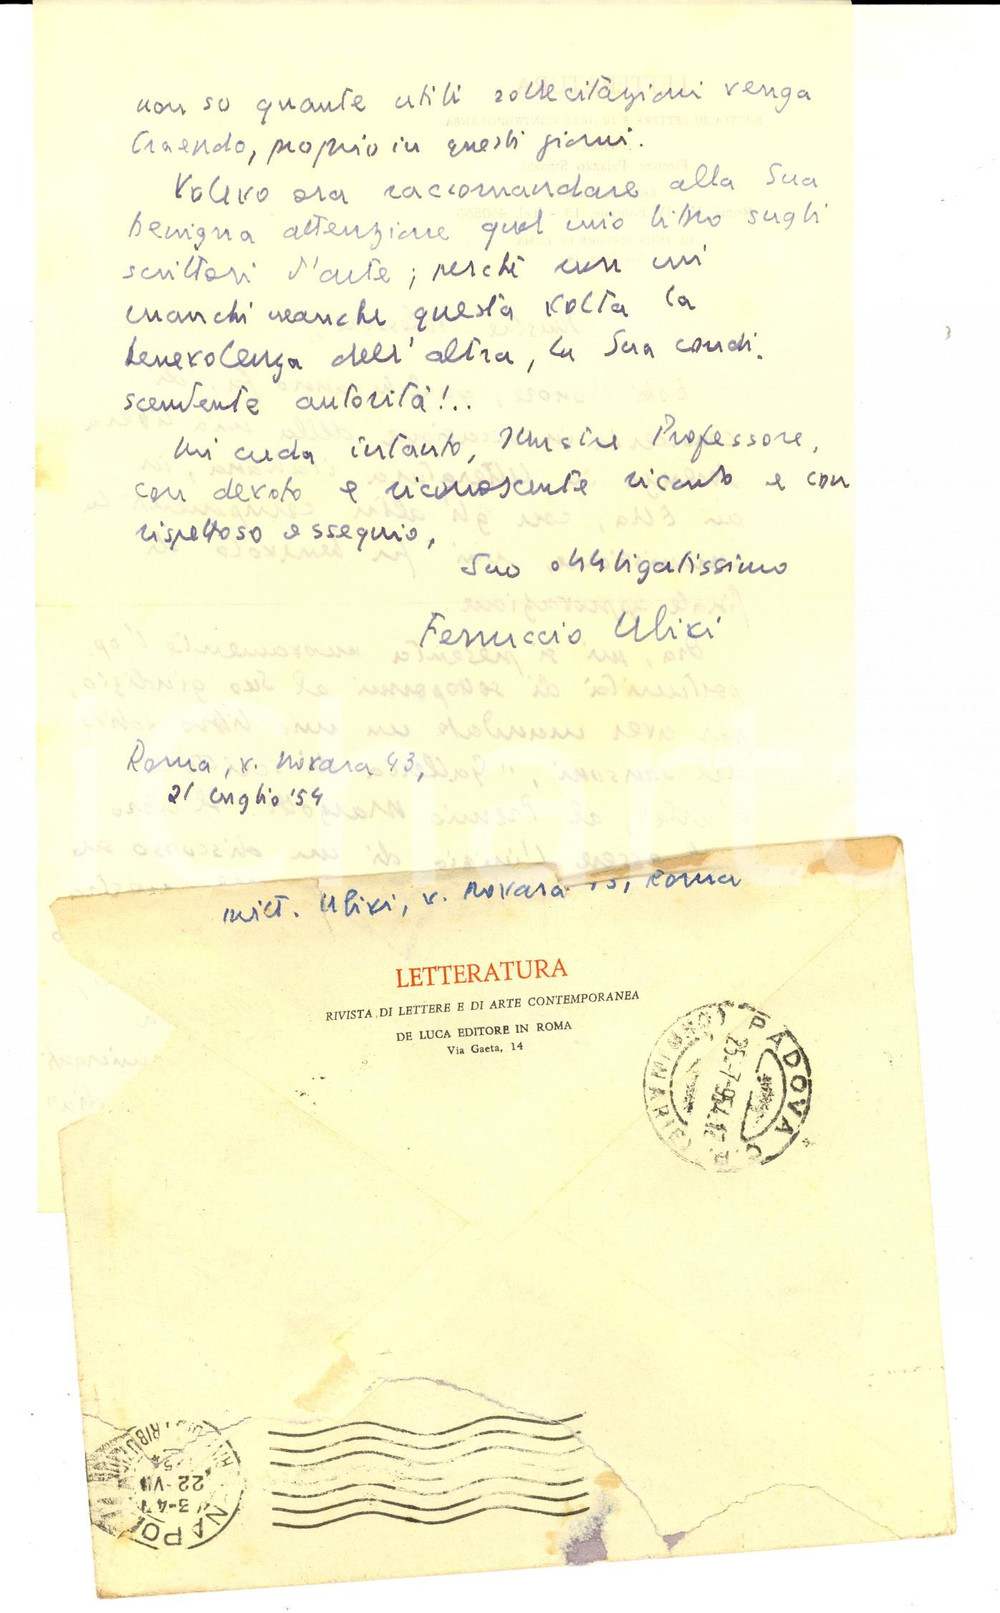 non so quante utili sollecitazioni venga
traendo, proprio in questi giorni.
Volevo ora raccomandare alla Sua
benigna attenzione quel mio libro sugli
scrittori d'arte; perché non mi
manchi neanche questa volta la
benevolenza dell'altra, la Sua condi-
scendente autorità!..
Mi creda intanto, Illustre Professore,
con devoto e riconoscente ricordo e con
rispettoso ossequio,
Suo obbligatissimo
Ferruccio Ulivi
Roma, v. Novara 43,
21 luglio '54
mitt. Ulivi, v. Novara 43, Roma
LETTERATURA
RIVISTA DI LETTERE E DI ARTE CONTEMPORANEA
DE LUCA EDITORE IN ROMA
Via Gaeta, 14
PADOVA C.P.
25-7-954.17
NAPOLI
22-VII